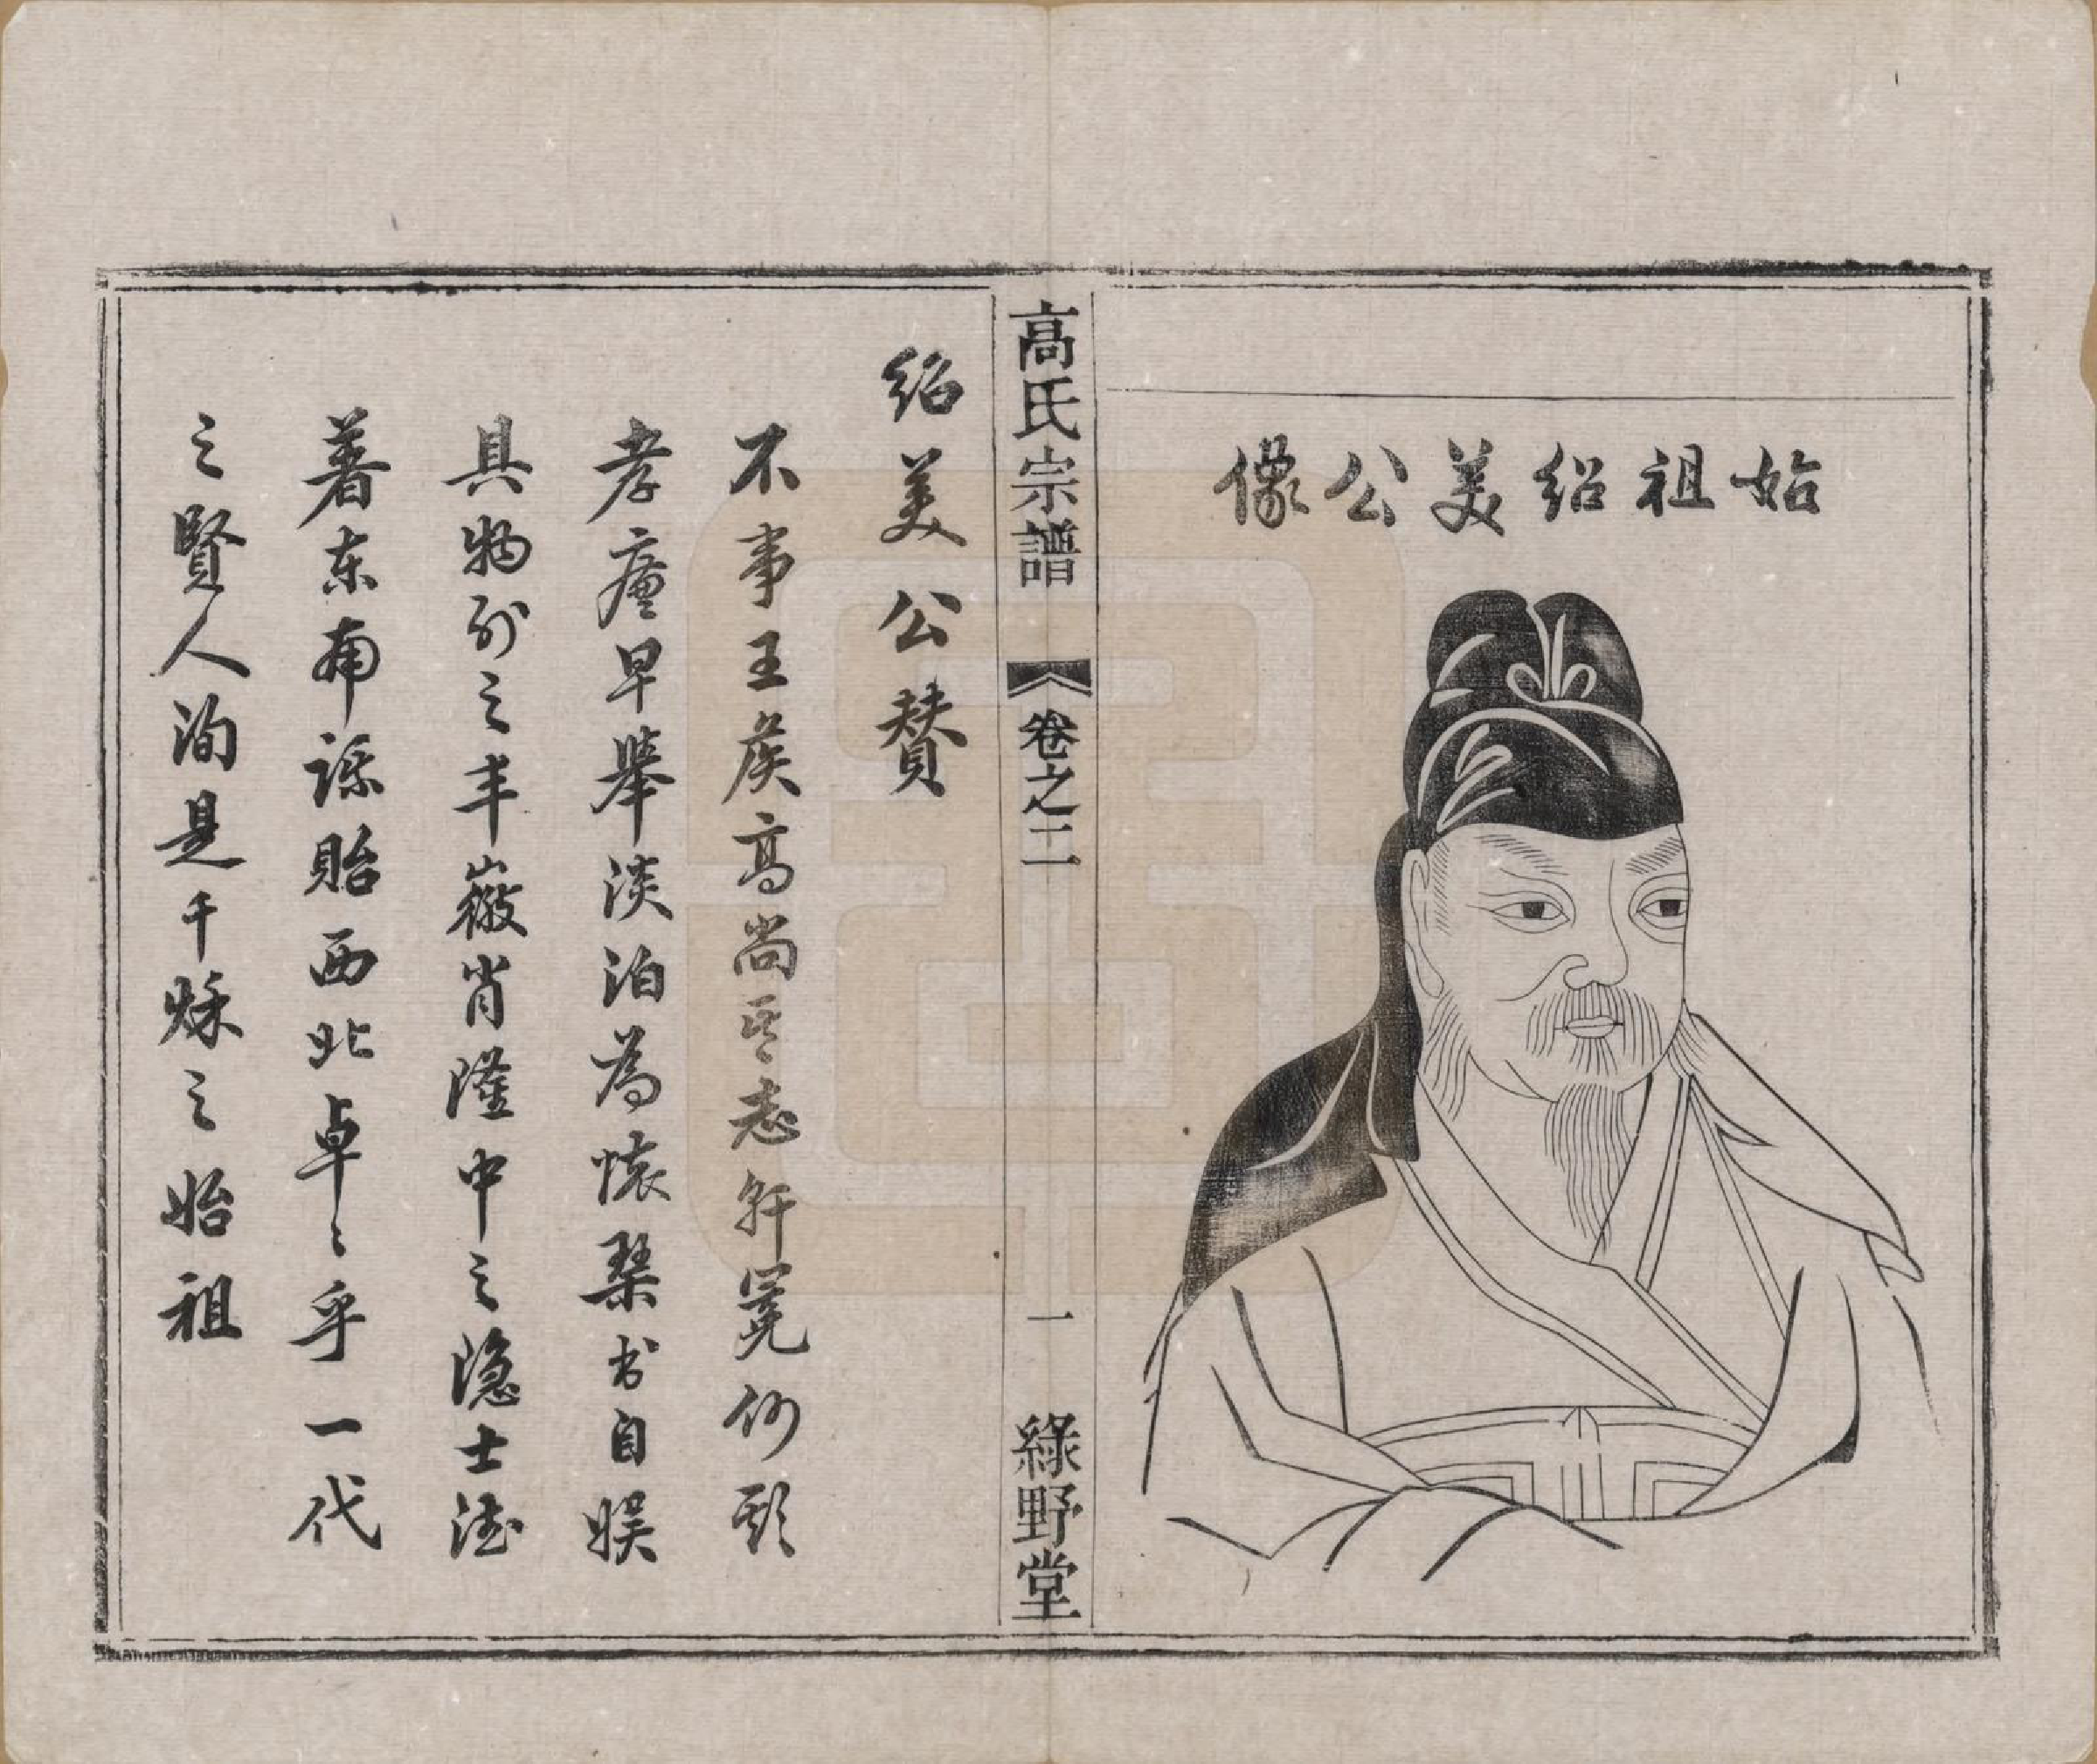 始祖紹美公像
高氏宗譜 卷之二 一 綠野堂
紹美公贊
不事王侯高尚其志軒冕何玩
孝廉早舉淡泊為懷琴书自娱
具物外之丰嶽肖隆中之隐士法
著东南謀貽西北卓々乎一代
之賢人洵是千秌之始祖